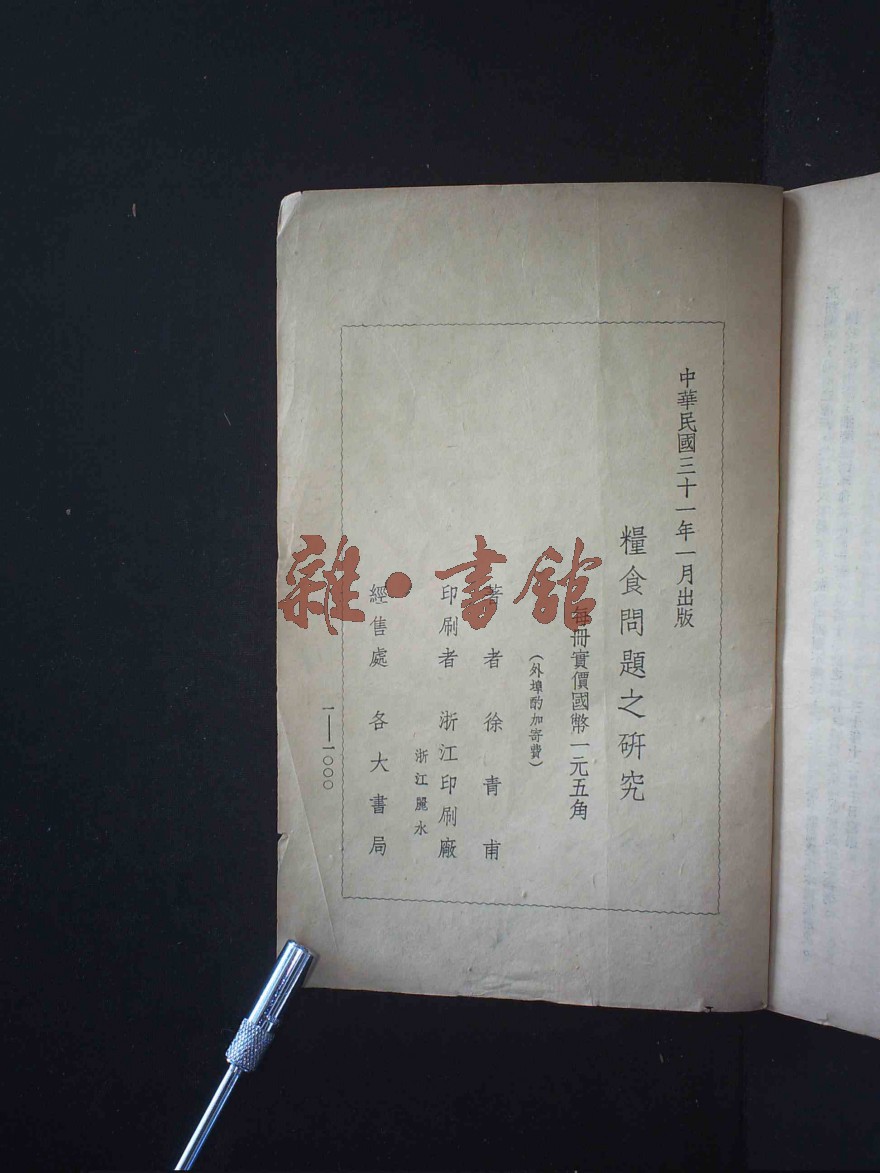 中華民國三十一年一月出版
糧食問題之研究
每冊實價國幣一元五角
（外埠酌加寄費）
著者 徐青甫
印刷者 浙江印刷廠
浙江麗水
經售處 各大書局
一——一〇〇〇
雜·書館